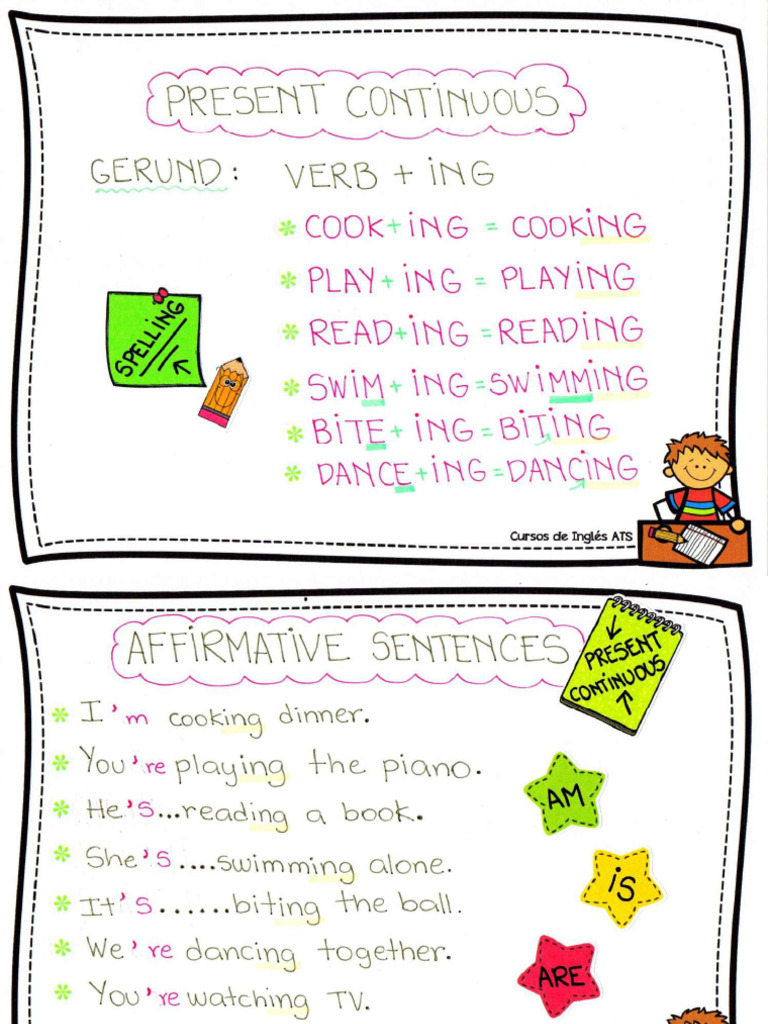 PRESENT CONTINUOUS
GERUND: VERB + iNG
* COOK+iNG = COOKiNG
* PLAY+iNG = PLAYiNG
* READ+iNG = READiNG
SPELLiNG
* SWiM+iNG=SWiMMiNG
* BiTE+iNG=BiTiNG
* DANCE+iNG=DANCiNG
Cursos de Inglés ATS
AFFiRMATiVE SENTENCES
PRESENT
CONTiNUOUS
* I'm cooking dinner.
* You're playing the piano.
* He's...reading a book.
AM
* She's....swimming alone.
iS
* It's......biting the ball.
* We're dancing together.
ARE
* You're watching TV.